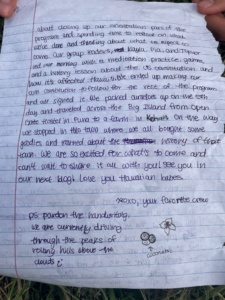 about closing up our orientation part of the
program and spending time to reflect on what
we've done and thinking about what we expect to
come. Our group leaders, Kayla, Ina, and
our morning with a meditation practice, games,
and a history lesson about the US constitution and
how it's affected Hawaii. We ended up making our
own constitution to follow for the rest of the program
and all signed it. We packed ourselves up on the 10th
day and traveled across the Big Island from
in Puna to a farm in On the way
we stopped in Hilo town where we all bought some
goodies and learned about the history of Hilo
town. We are so excited for what's to come and
can't wait to share it all with you! See you in
our next blog! Love you Hawaiian babes
xoxo, your favorite crew
ps: pardon the handwriting.
we are currently driving
through the peaks of
rolling hills above the
clouds :)